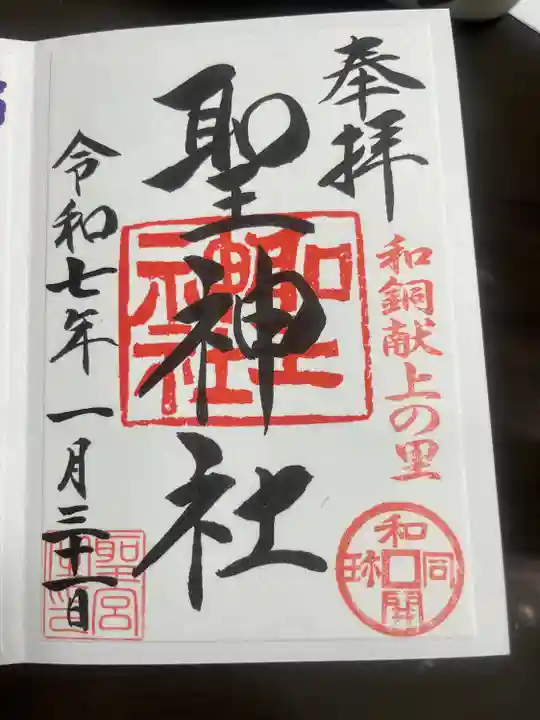 奉拝
和銅献上の里
和同開珎
聖神社
聖神社
令和七年一月三十一日
聖宮